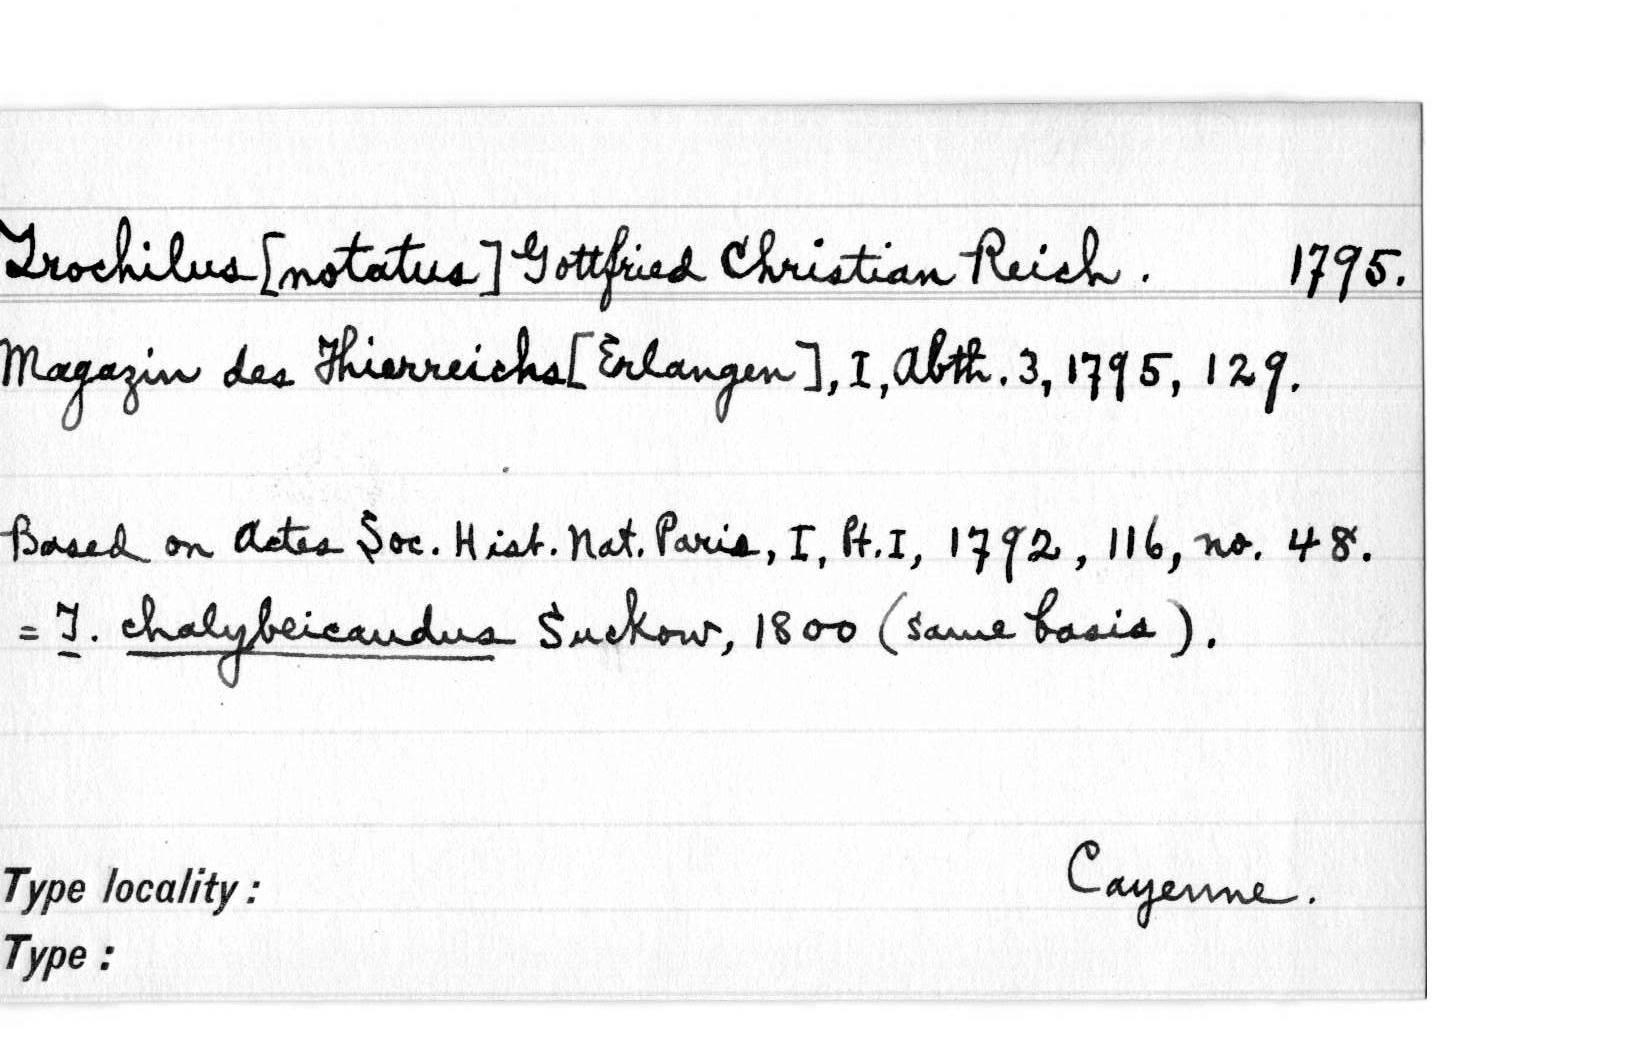 Trochilus [notatus] Gottfried Christian Reich. 1795.
Magazin des Thierreichs [Erlangen], I, Abth. 3, 1795, 129.
Based on Actes Soc. Hist. Nat. Paris, I, Pt. I, 1792, 116, no. 48.
= T. chalybeicaudus Suckow, 1800 (same basis).
Type locality: Cayenne.
Type: